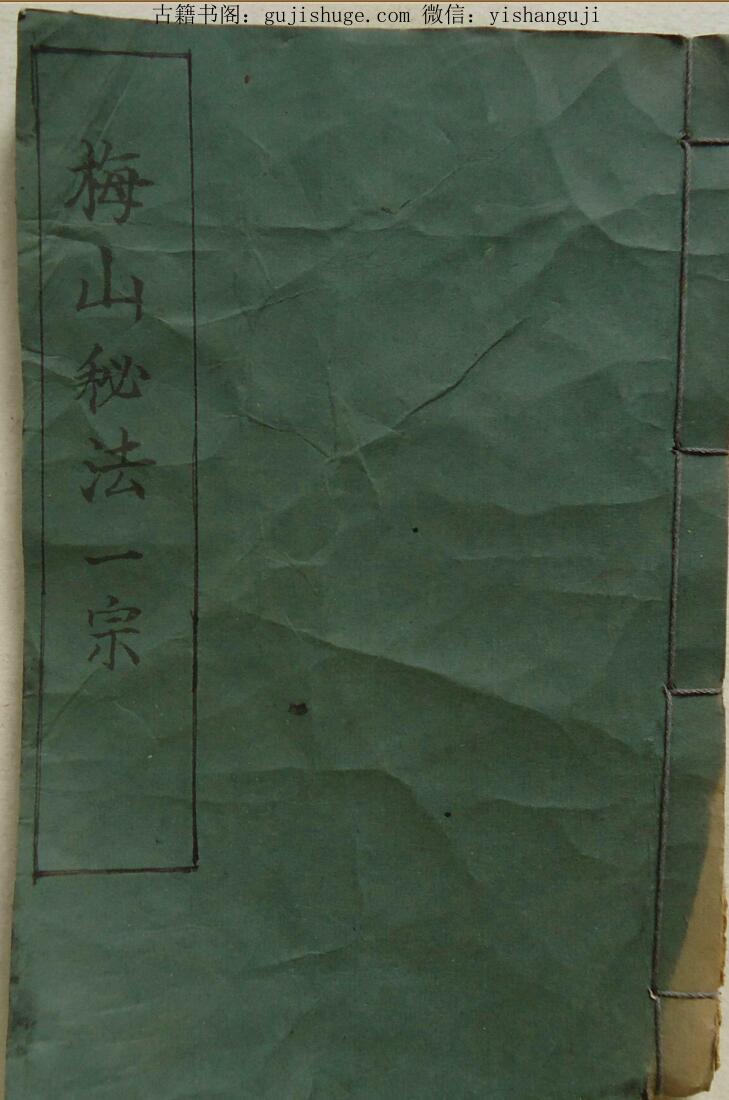 古籍书阁：gujishuge.com 微信：yishanguji
梅山秘法一宗